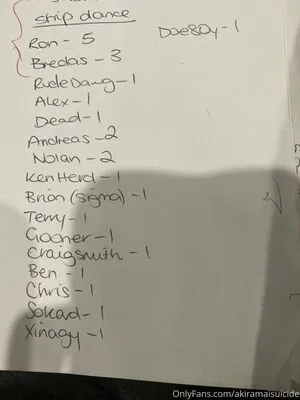 strip dance
Ron - 5
DaeSoy - 1
Bredas - 3
RudeDawg - 1
Alex - 1
Dead - 1
Andreas - 2
Nolan - 2
Ken Herd - 1
Brian (sigma) - 1
Terry - 1
Gooner - 1
Craigsmith - 1
Ben - 1
Chris - 1
Sokad - 1
Xinagy - 1
OnlyFans.com/akiramaisuicide